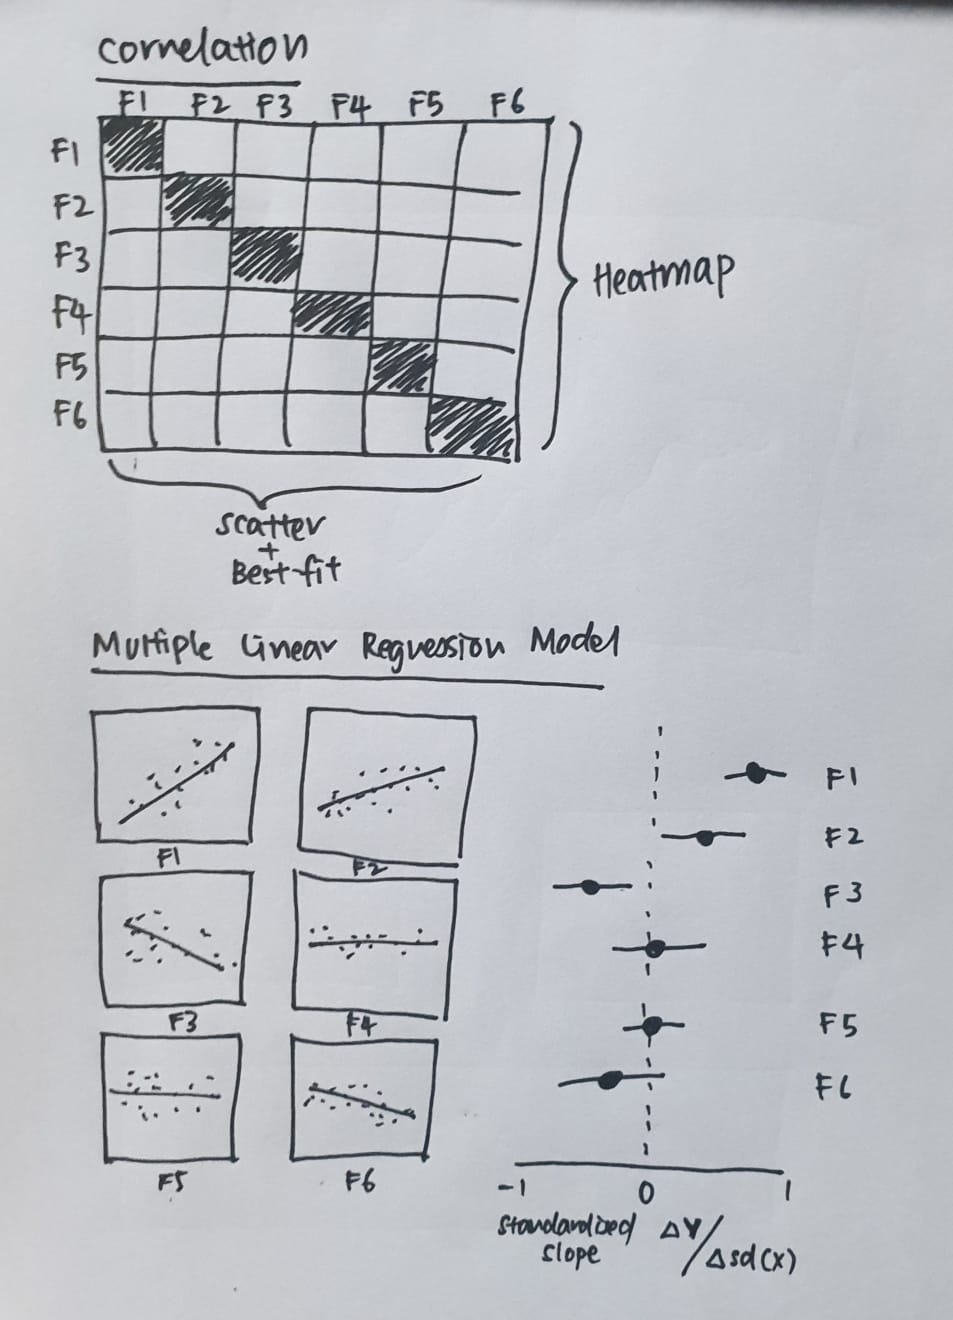 Correlation
F1 F2 F3 F4 F5 F6
F1
F2
F3
F4
F5
F6
Heatmap
Scatter
+
Best-fit
Multiple Linear Regression Model
F1
F2
F3
F4
F5
F6
F1
F2
F3
F4
F5
F6
-1 0 1
Standardized slope
ΔY/Δsd(x)